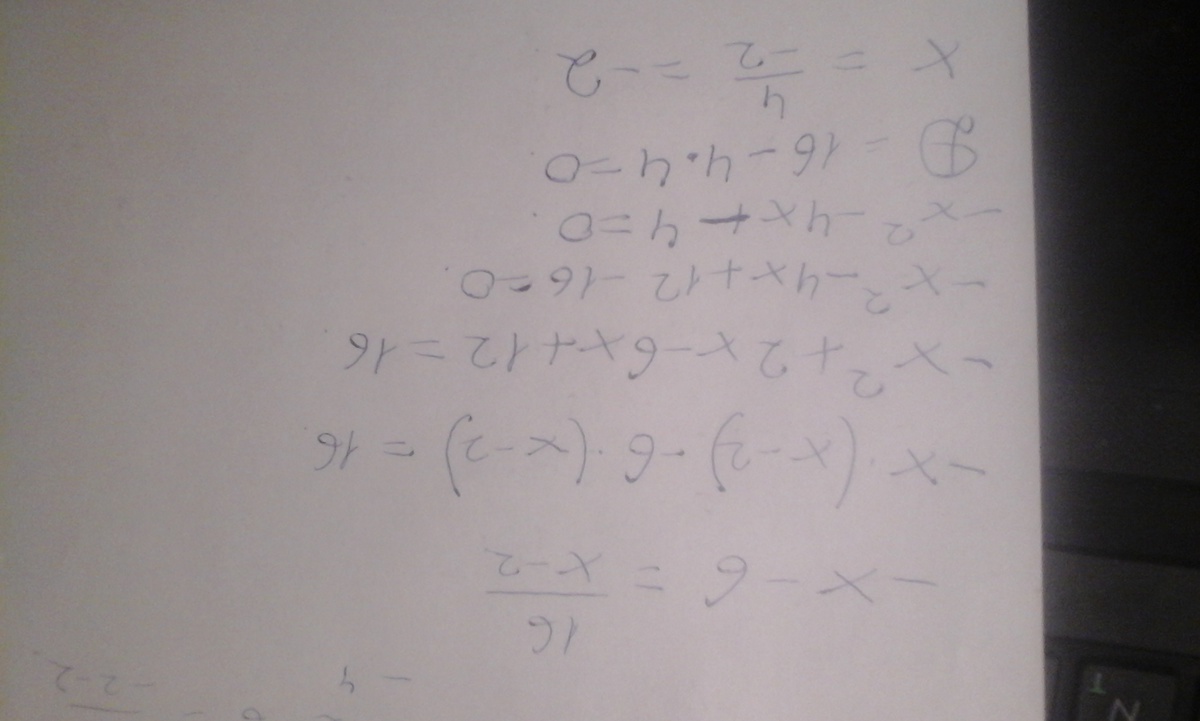 - 4 -2-2
-x-6 = 16/(x-2)
-x·(x-2)-6·(x-2) = 16
-x²+2x-6x+12=16
-x²-4x+12-16=0
-x²-4x-4=0
D=16-4·4=0
x = 4/-2 = -2